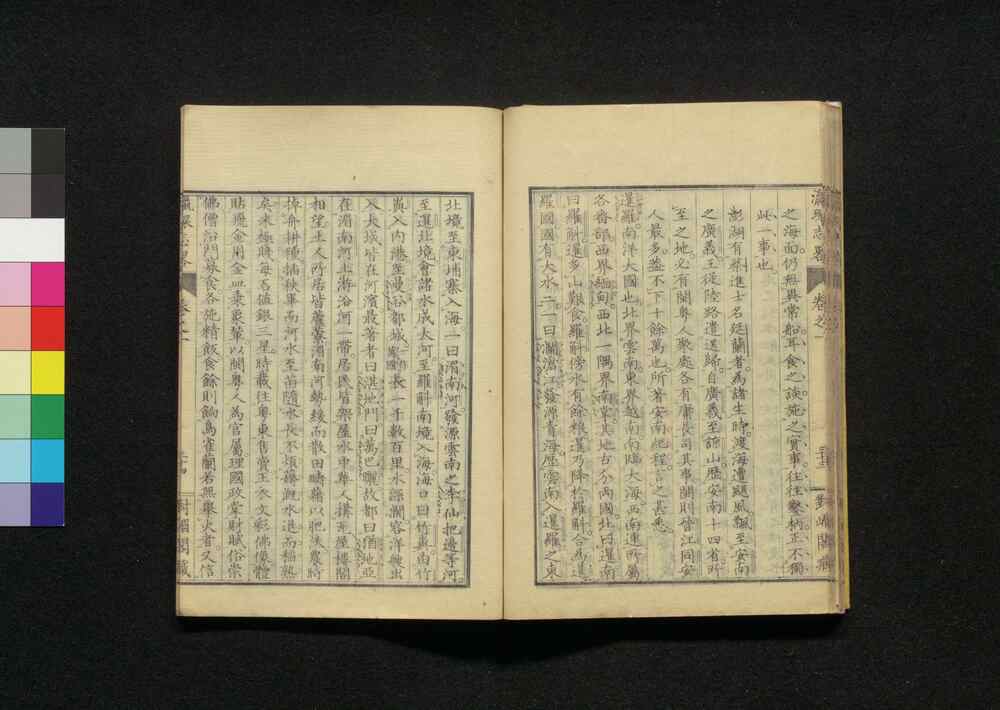 瀛環志略
卷之一
對嵋閣藏
之海面仍無異常船耳食之談施之實事往往鑿枘正不獨
此一事也
澎湖有蔡進士名廷蘭者為諸生時渡海遭颶風飄至安南
之廣義王從陸路遣送歸自廣義至諒山歷安南十四省所
至之地必有閩粵人聚處各有庸長司其事閩則晉江同安
人最多蓋不下十餘萬也所著安南紀程言之甚悉
暹羅南洋大國也北界雲南東界越南南臨大海西南連所屬
各番部西界緬甸西北一隅界南掌其地古分兩國北曰暹南
曰羅斛暹多山艱食羅斛傍水有餘糧暹乃降於羅斛合為暹
羅國國有大水二一曰瀾滄江發源青海歷雲南入暹羅之東
北境至東埔寨入海一曰湄南河發源雲南之李仙把邊等河
至暹北境會諸水成大河至羅斛南境入海海口曰竹嶼由竹
嶼入內港至曼谷都城國長一千數百里水深闊容洋舶出
入大城皆在河濱最著者曰淇地門曰萬巴曬故都曰猶地亞
在湄南河上游沿河一帶居民皆架屋水中粵人構瓦屋樓閣
相望土人所居皆蘆葦湄南河勢緩而散田疇藉以肥沃農時
棹舟耕種插秧畢而河水至苗隨水長不須薅溉水退而稻熟
矣米極賤每石值銀三星時載往粵東售賣王衣文彩佛像體
貼飛金用金皿乘象輦以閩粵人為官屬理國政掌財賦俗崇
佛僧沿門募食各施精飯食餘則飼鳥雀蘭若無舉火者又信
瀛環志略
卷之一
二十四
對嵋閣藏